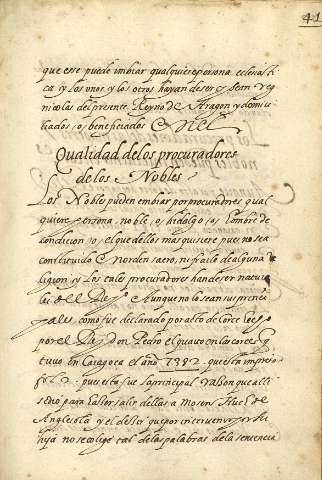 41
que esse puede imbiar qualquiere persona eclesiasti
ca y los unos y los otros hayan de ser y sean reg
nicolas del presente Reyno de Aragon y domici
liados, o, beneficiados en el
Qualidad de los procuradores
de los Nobles
Los Nobles pueden embiar por procuradores qual
quiere persona, noble, o, hidalgo, o, hombre de
condicion, o, el que dellos mas quisiere pues no sea
constituido en orden sacro, ni fraile de alguna re
ligion y los tales procuradores han de ser natura
les del Reyno Aunque no lo sean sus princi
pales, como fue declarado por alto de Corte
por el Rey don Pedro el quarto en las cortes q
tuvo en Caragoca el año 1382. que esta impreso
fol. 2. puesta fue la principal rason que alli
se dio para haber salir dellas a Mosen Huc de
Anglesola y el dezir que por intervenir
hija no se colige tal de las palabras de la sentencia